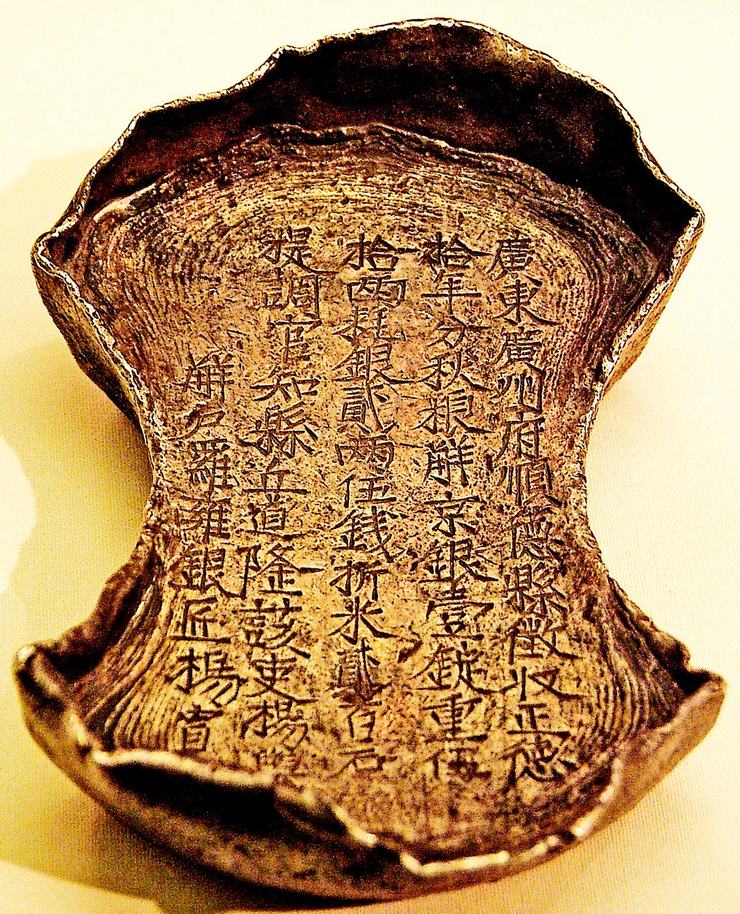 廣東廣州府順德縣徵收正德
拾年分秋粮解京銀壹錠重伍
拾两耗銀貳两伍錢折米百石
提調官知縣丘道隆該吏楊
解户羅銀匠楊